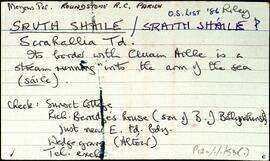 Moyrus Par. ROUNDSTONE R.C. PARISH
O.S. LIST '86 Riley
SRUTH SHAILE / SRAITH SHAILE ?
Scrahallia Td.
Its border with Cluain Aille is a
stream running "into the arm of the sea
(sáile).
Check: Sunset Cottage
Rich. Berridge's house (son of B. of Ballynahinch)
Just near E. td. bdy.
Wedge grave (Altóir)
Tel. exch.